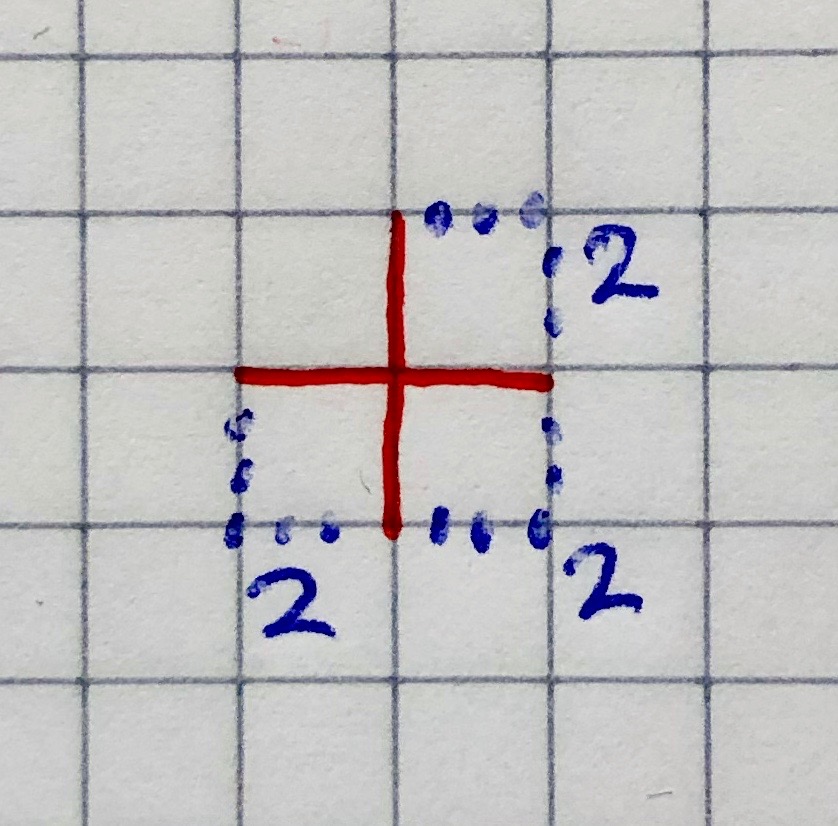 2
2 2